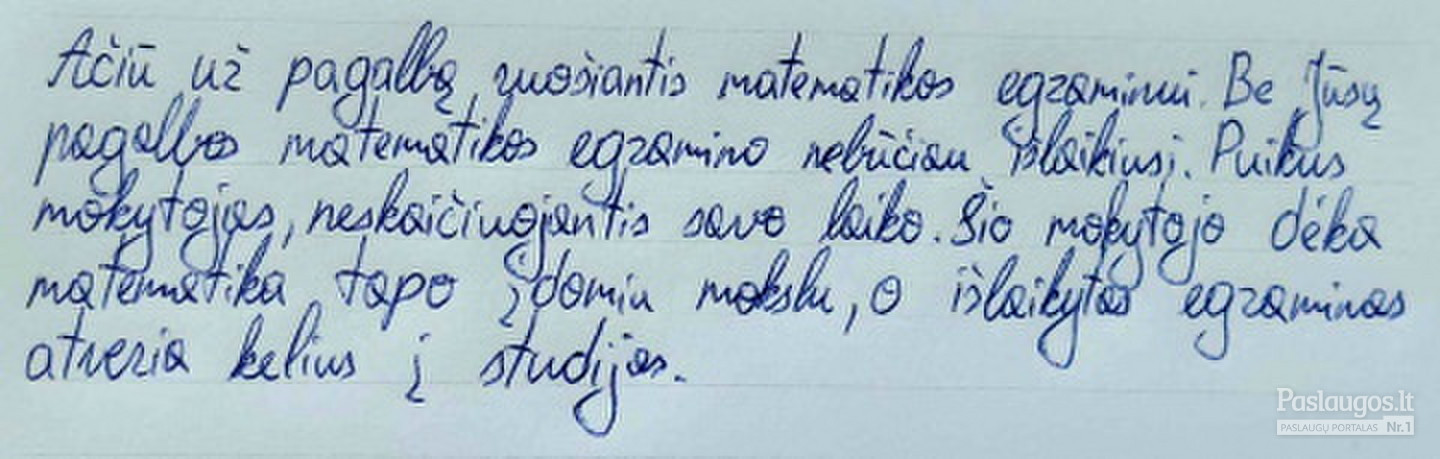 Ačiū už pagalbą ruošiantis matematikos egzaminui. Be Jūsų
pagalbos matematikos egzamino nebūčiau išlaikiusi. Puikus
mokytojas, neskaičiuojantis savo laiko. Šio mokytojo dėka
matematika tapo įdomiu mokslu, o išlaikytas egzaminas
atveria kelius į studijas.
Paslaugos.lt
PASLAUGŲ PORTALAS Nr.1